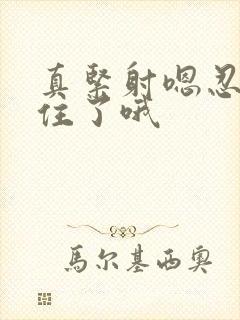 真緊射嗯忍
住了哦
馬尔基西奥